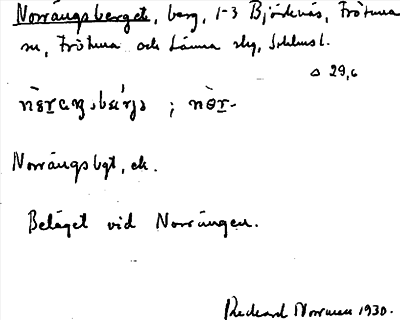 Norrängsberget, berg, 1-3 Björknäs, Frötuna
sn, Frötuna och Länna slg, Sthlms l.
△ 29,6
; nör-
Norrängsbgt, ek.
Beläget vid Norrängen.
Rickard Norrmen 1930.